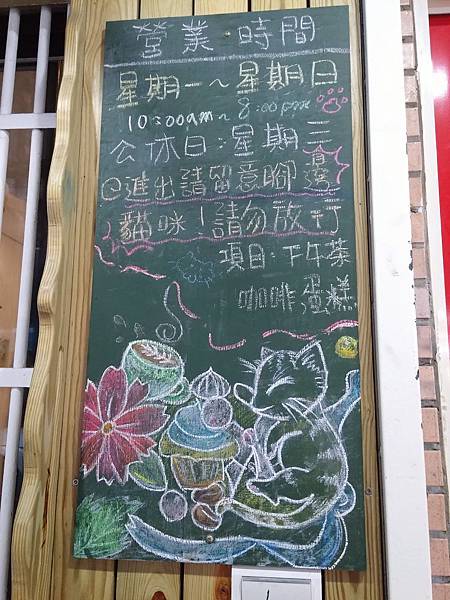 營業時間
星期一～星期日
10:00am~8:00pm
公休日:星期三
@進出請留意腳邊
貓咪!請勿放行
項目:下午茶
咖啡蛋糕